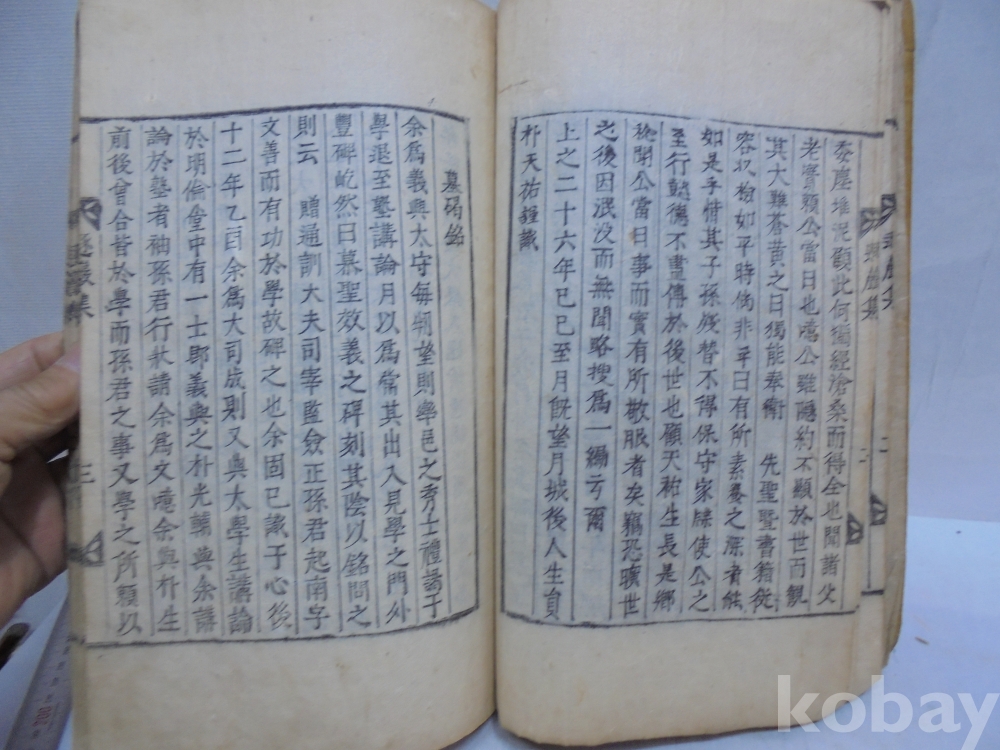 委塵堆況顧此何獨經滄桑而得全也聞諸父
老實賴公當日也噫公雖隱約不顯於世而觀
其大難蒼黃之日獨能奉衛 先聖暨書籍從
容收檢如平時倘非平日有所素養之深者能
如是乎惜其子孫殘替不得保守家牒使公之
至行懿德不盡傳於後世也顧天祐生長是鄉
稔聞公當日事而實有所敬服者矣竊恐曠世
之後因泯没而無聞略搜爲一編云爾
上之二十六年己巳至月旣望月城後人生員
朴天祐謹識
墓碣銘
余爲義興太守每朔望則率邑之秀士禮謁于
學退至塾講論月以爲常其出入見學之門外
豐碑屹然曰慕聖效義之碑刻其陰以銘問之
則云 贈通訓大夫司宰監僉正孫君起南字
文善而有功於學故碑之也余固已識于心後
十二年乙酉余爲大司成則又與太學生講論
於明倫堂中有一士卽義興之朴光輔與余講
論於塾者袖孫君行狀請余爲文噫余與朴生
前後會合皆於學而孫君之事又學之所賴以
三
kobay